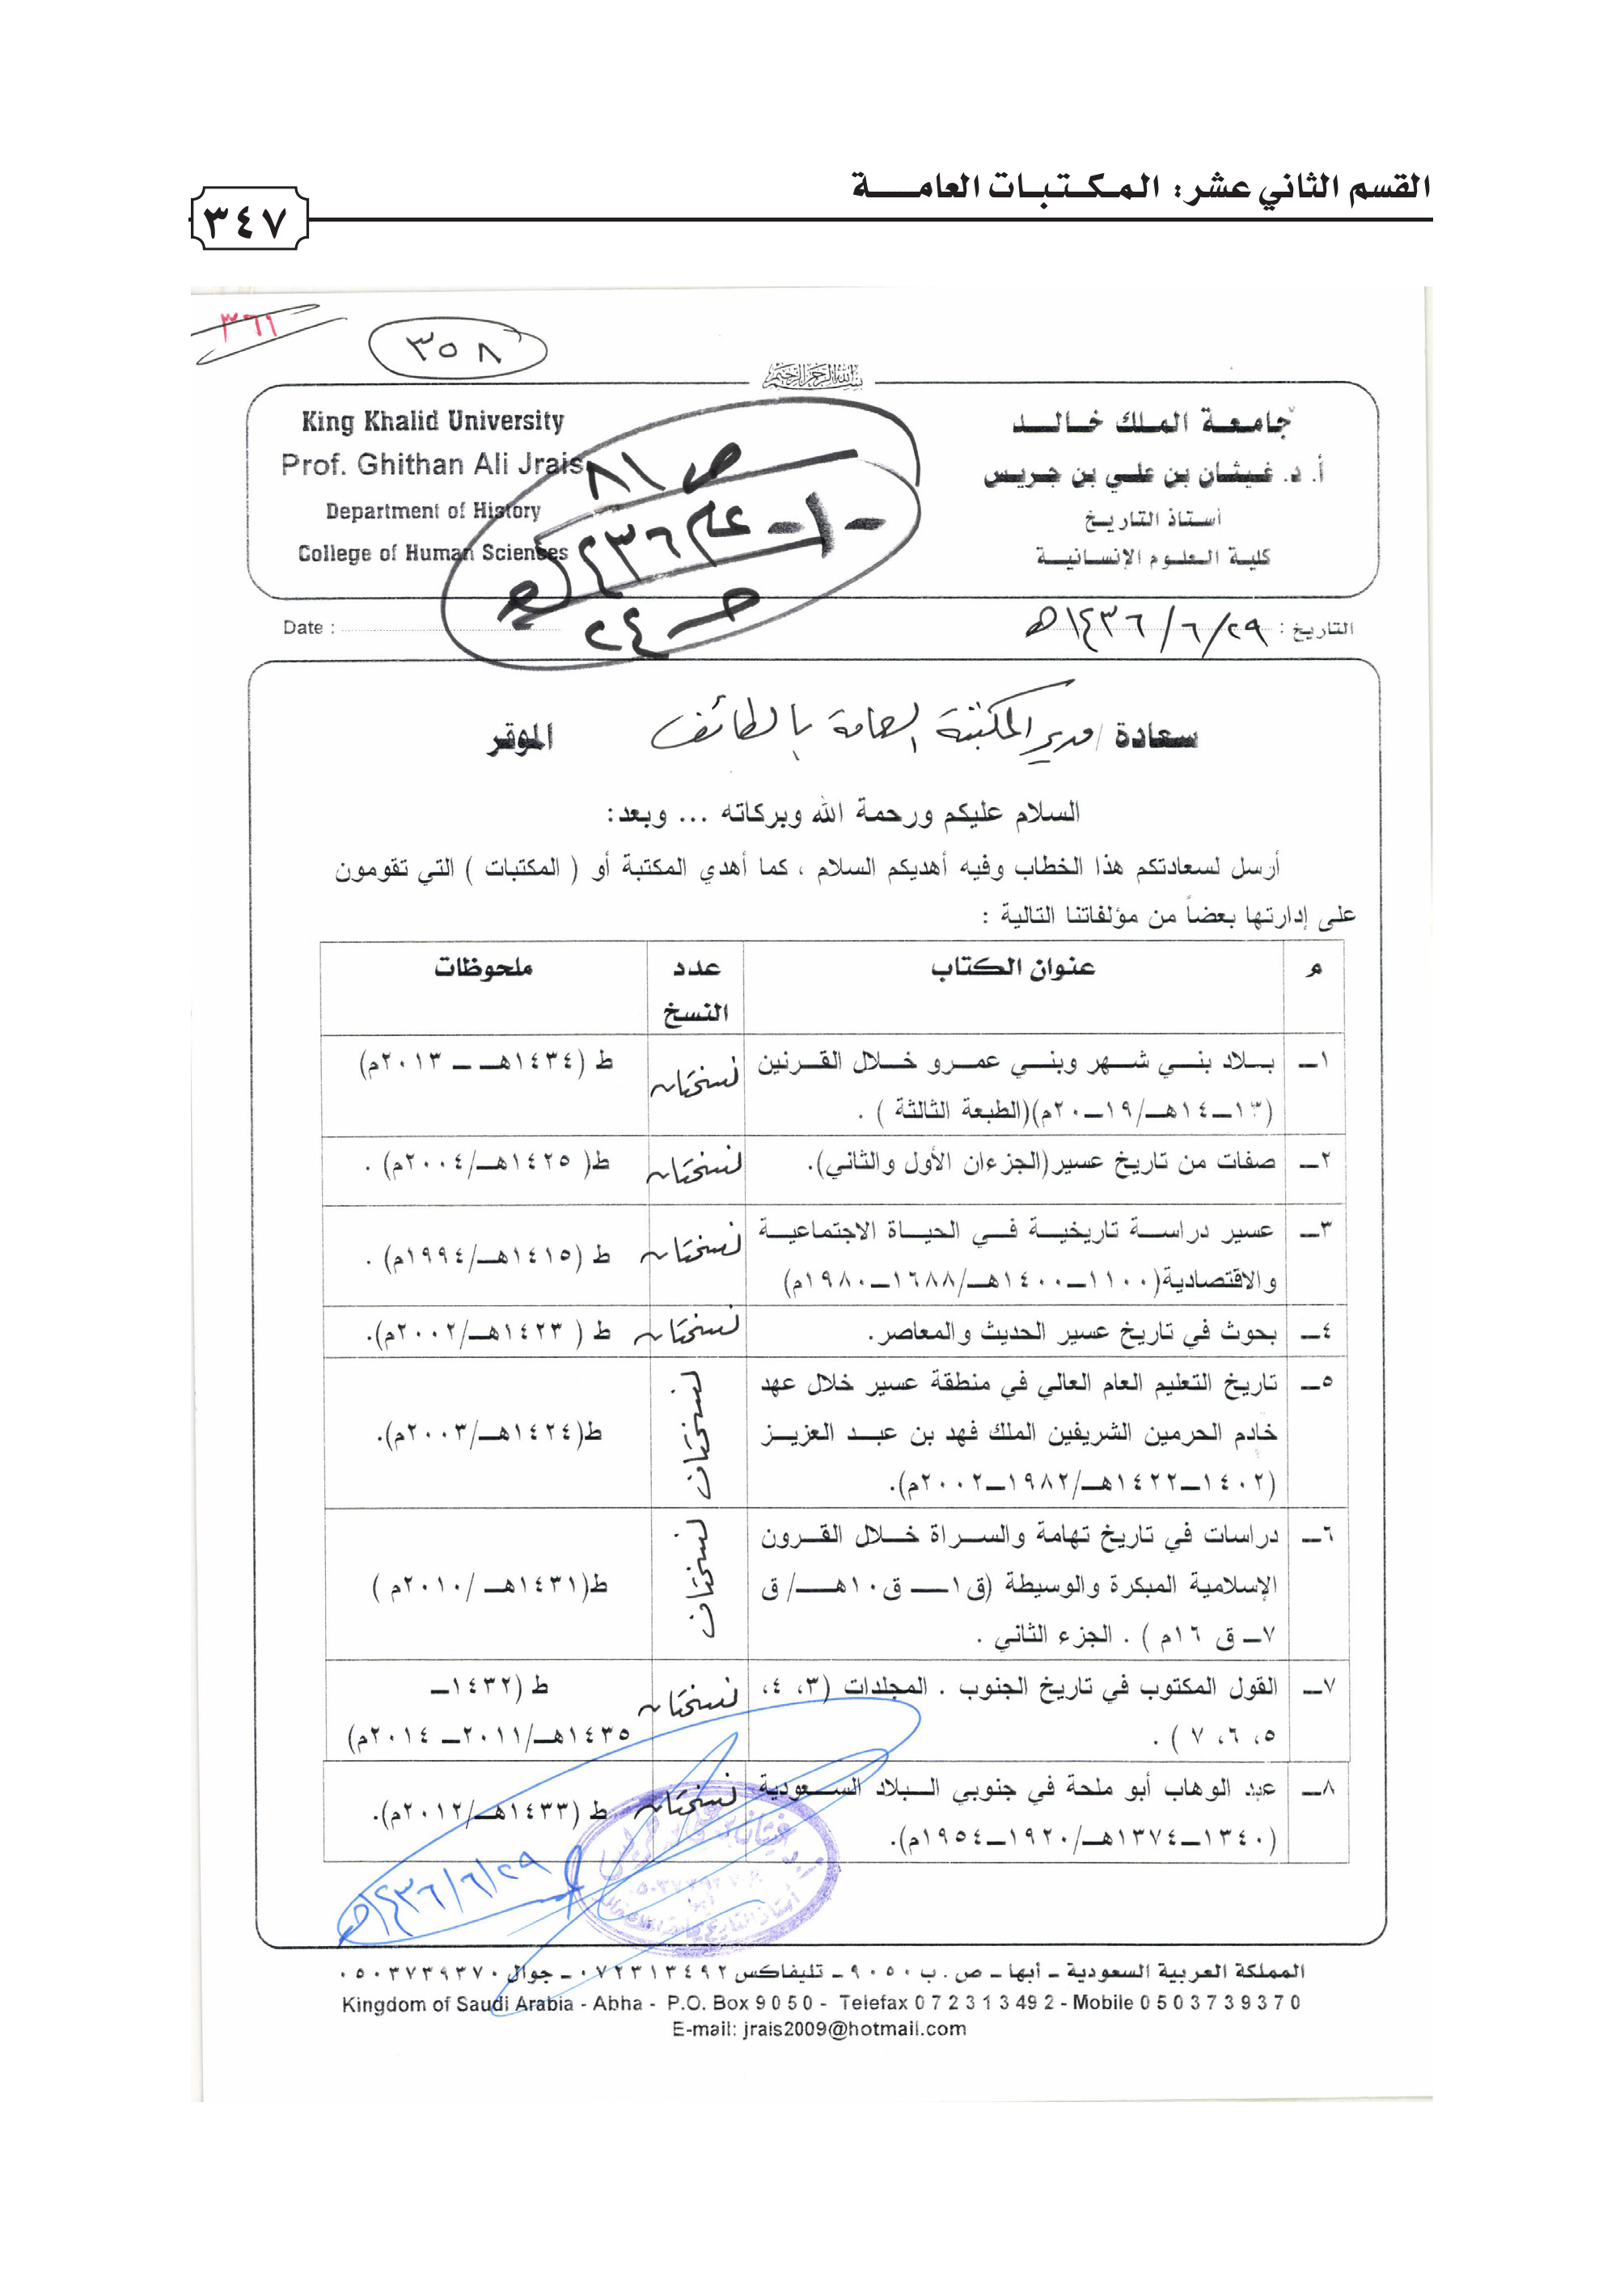 القسم الثاني عشر: المكتبات العامة
٣٤٧
٣٦١
٣٥٨
بسم الله الرحمن الرحيم
جامعة الملك خالد
أ. د. غيثان بن علي بن جريس
أستاذ التاريخ
كلية العلوم الإنسانية
King Khalid University
Prof. Ghithan Ali Jrais
Department of History
College of Human Sciences
ص ٨١
-١- عام ١٤٣٦هـ
حـ ٢٤
التاريخ : ٢٩/ ٦/ ١٤٣٦هـ
Date :
سعادة / مدير المكتبة العامة بالطائف الموقر
السلام عليكم ورحمة الله وبركاته ... وبعد:
أرسل لسعادتكم هذا الخطاب وفيه أهديكم السلام ، كما أهدي المكتبة أو ( المكتبات ) التي تقومون
على إدارتها بعضاً من مؤلفاتنا التالية :
م عنوان الكتاب عدد النسخ ملحوظات
١ــ بلاد بني شهر وبني عمرو خلال القرنين
(١٣ــ١٤هـ/١٩ــ٢٠م)(الطبعة الثالثة ) . نسختان ط (١٤٣٤هـ ــ ٢٠١٣م)
٢ــ صفات من تاريخ عسير(الجزءان الأول والثاني). نسختان ط( ١٤٢٥هـ/٢٠٠٤م) .
٣ــ عسير دراسة تاريخية في الحياة الاجتماعية
والاقتصادية(١١٠٠ــ١٤٠٠هـ/١٦٨٨ــ١٩٨٠م) نسختان ط (١٤١٥هـ/١٩٩٤م) .
٤ــ بحوث في تاريخ عسير الحديث والمعاصر. نسختان ط ( ١٤٢٣هـ/٢٠٠٢م).
٥ــ تاريخ التعليم العام العالي في منطقة عسير خلال عهد
خادم الحرمين الشريفين الملك فهد بن عبد العزيز
(١٤٠٢ــ١٤٢٢هـ/١٩٨٢ــ٢٠٠٢م). نسختان ط(١٤٢٤هـ/٢٠٠٣م).
٦ــ دراسات في تاريخ تهامة والسراة خلال القرون
الإسلامية المبكرة والوسيطة (ق١ــ ق١٠هـ/ ق
٧ــ ق ١٦م ) . الجزء الثاني . نسختان ط(١٤٣١هـ /٢٠١٠م )
٧ــ القول المكتوب في تاريخ الجنوب . المجلدات (٣، ٤،
٥، ٦، ٧ ) . نسختان ط (١٤٣٢ــ
١٤٣٥هـ/٢٠١١ــ ٢٠١٤م)
٨ــ عبد الوهاب أبو ملحة في جنوبي البلاد السعودية
(١٣٤٠ــ١٣٧٤هـ/١٩٢٠ــ١٩٥٤م). نسختان ط (١٤٣٣هـ/٢٠١٢م).
٢٩/٦/١٤٣٦هـ
المملكة العربية السعودية ـ أبها ـ ص . ب ٩٠٥٠ ـ تليفاكس ٠٧٢٣١٣٤٩٢ ـ جوال ٠٥٠٣٧٣٩٣٧٠
Kingdom of Saudi Arabia - Abha - P.O. Box 9 0 5 0 - Telefax 0 7 2 3 1 3 49 2 - Mobile 0 5 0 3 7 3 9 3 7 0
E-mail: jrais2009@hotmail.com